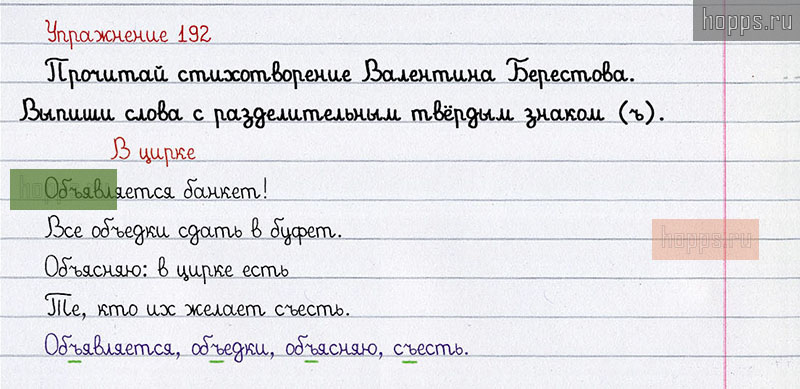 hopps.ru
Упражнение 192
Прочитай стихотворение Валентина Берестова.
Выпиши слова с разделительным твёрдым знаком (ъ).
В цирке
Объявляется банкет!
Все объедки сдать в буфет.
hopps.ru
Объясняю: в цирке есть
Те, кто их желает съесть.
Объявляется, объедки, объясняю, съесть.